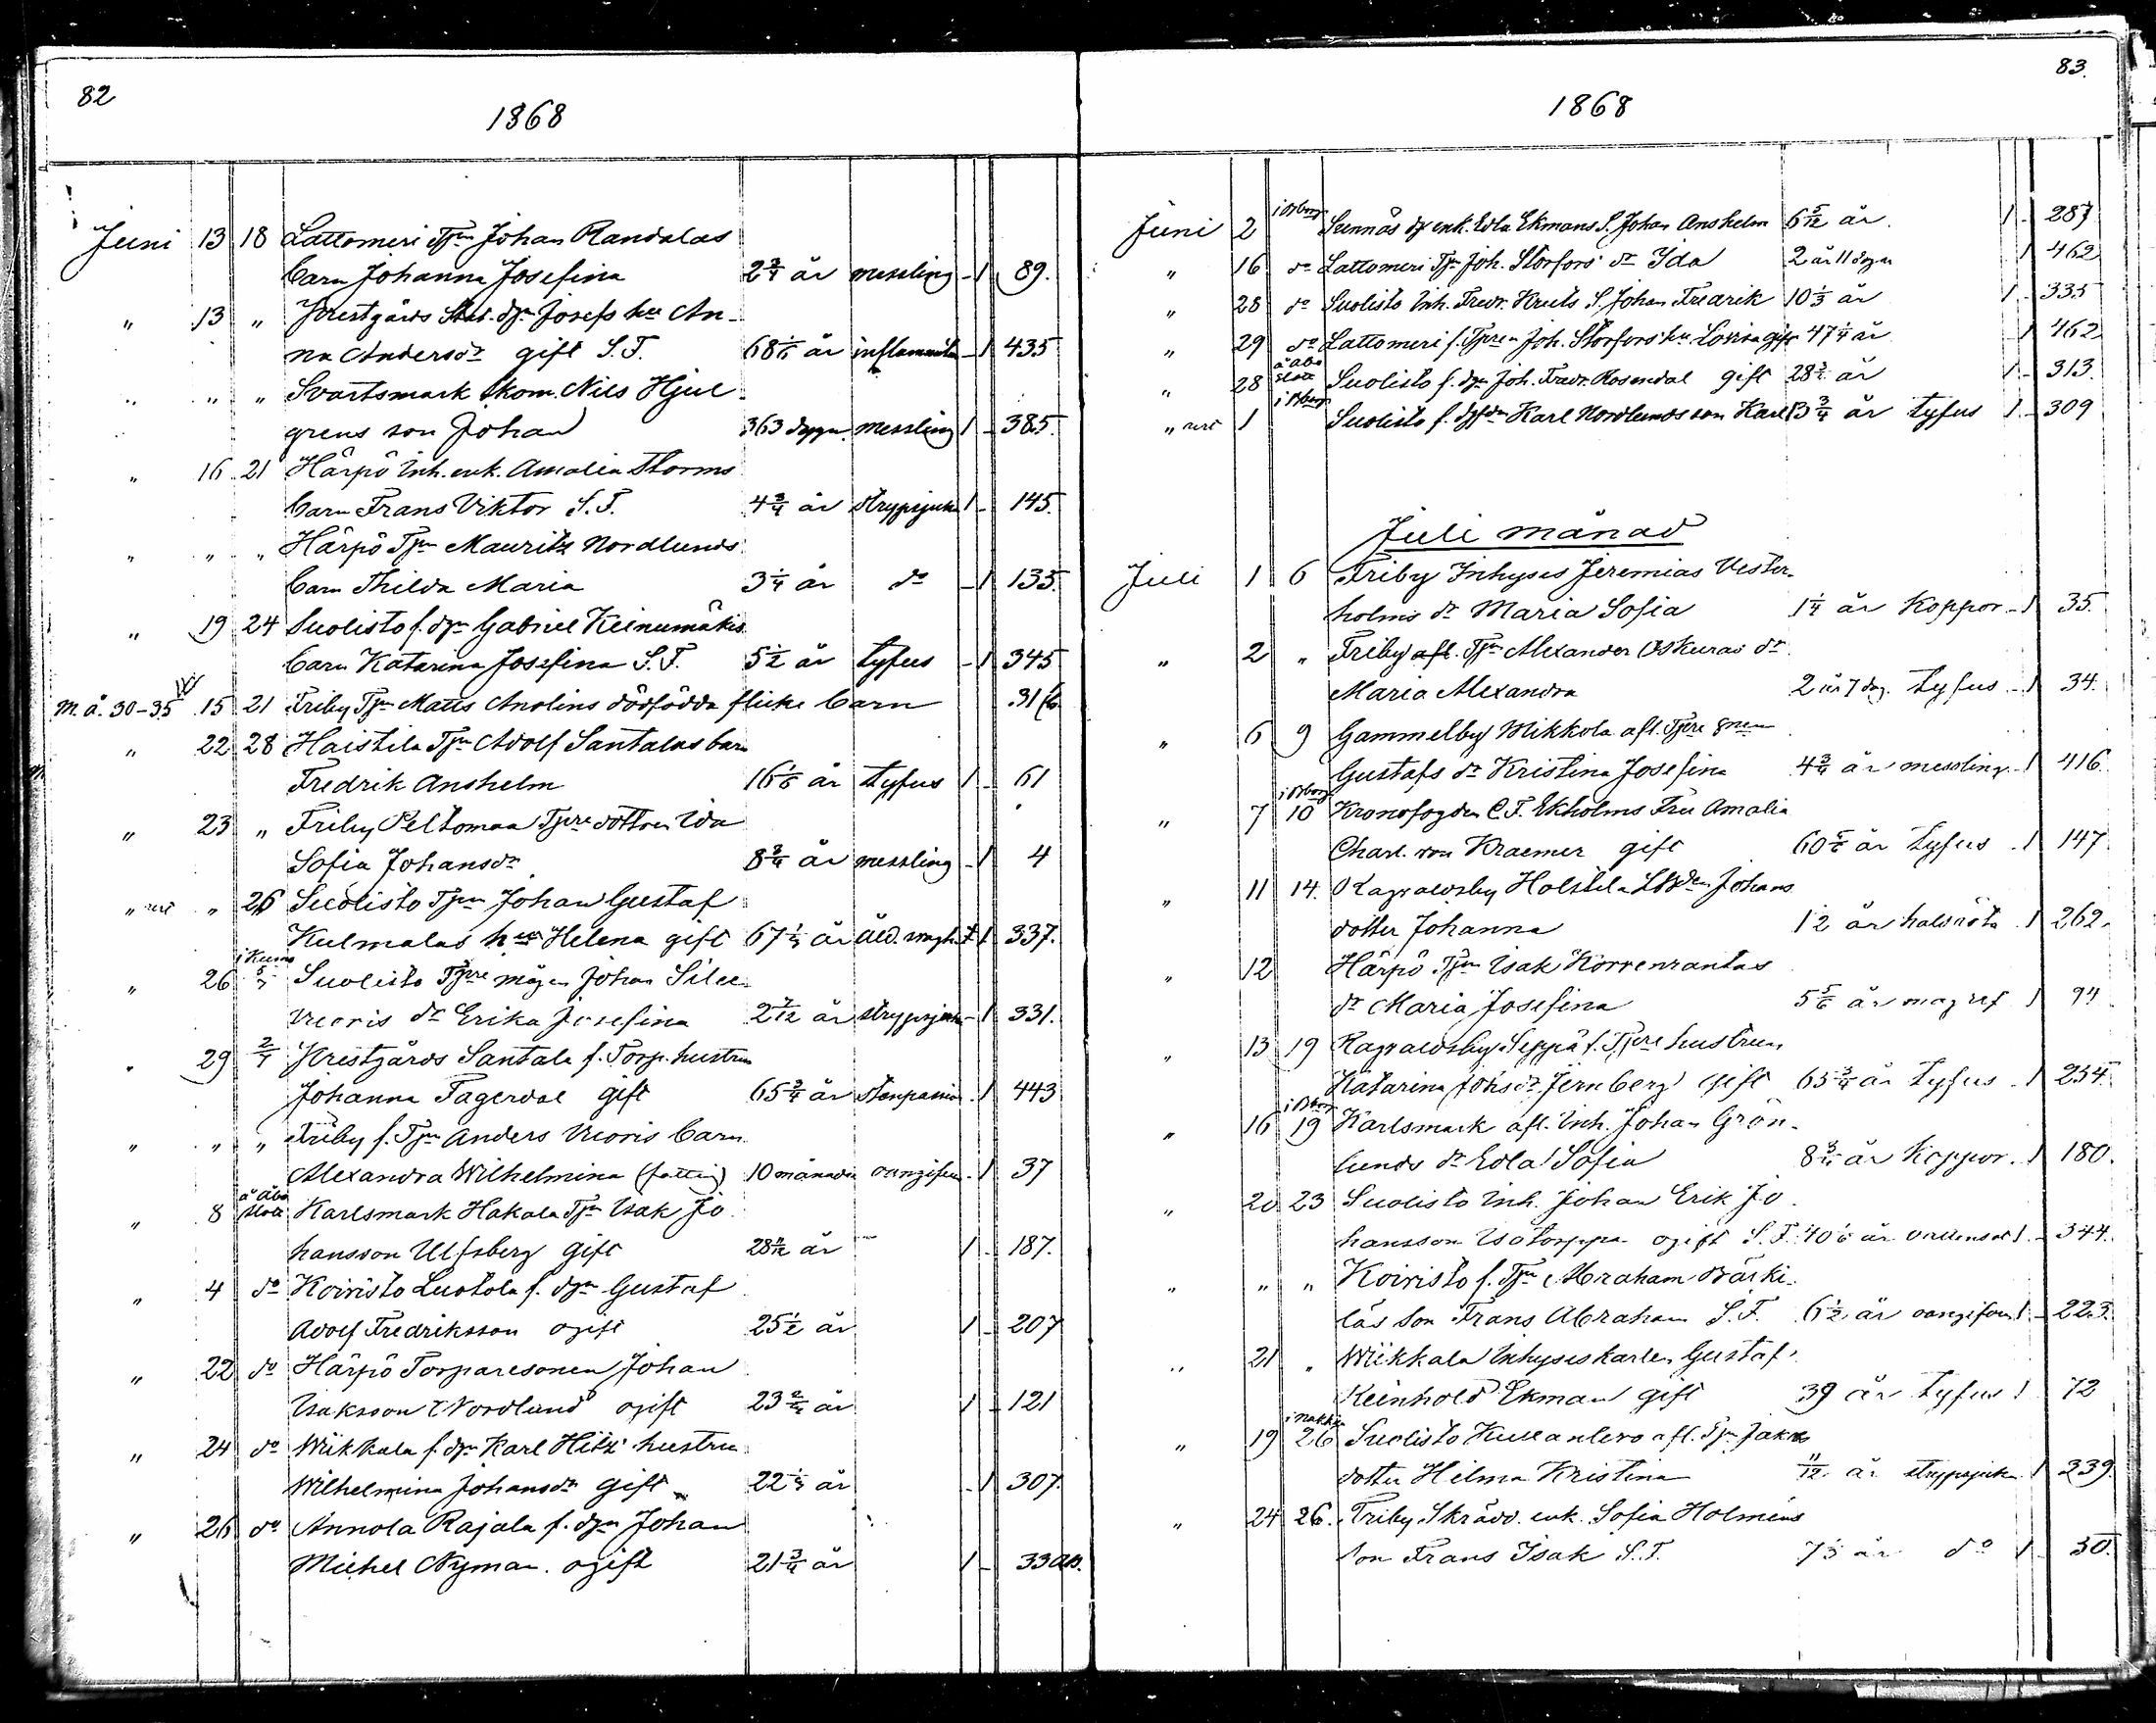 82
1868
Juni 13 18 Lattomeri Tjn Johan Randalas
barn Johanna Josefina 2 3/4 år messling - 1 89.
" 13 " Prestgårds Stat. dgn Josefs hu An-
na Andersdr gift S.T. 68 1/6 år inflammation - 1 435
" " " Svartsmark Skom. Nils Hjul-
grens son Johan 363 dygn. messling 1 - 385.
" 16 21 Härpö Inh. enk. Amalia Storms
barn Frans Viktor S.T. 4 3/4 år strypsjuka 1 - 145.
" " " Härpö Tjn Mauritz Nordlunds
barn Thilda Maria 3 1/4 år do - 1 135.
" 19 24 Suolisto f. dgn Gabriel Keinumäkis
barn Katarina Josefina S.T. 5 1/2 år tyfus - 1 345
M. å. 30-35 15 21 Friby Tjn Matts Anolins dödfödda flicke barn 31
" 22 28 Haistila Tjn Adolf Santalas barn
Fredrik Anshelm 16 1/6 år tyfus 1 - 61
" 23 " Friby Peltomaa Tjre dottren Ida
Sofia Johansdr 8 3/4 år messling - 1 4
" " 26 Suolisto Tjn Johan Gustaf
Kulmalas hu Helena gift 67 1/3 år åld. 1 337.
i Kumo
" 26 5/7 Suolisto Tjre mågen Johan Silu-
vuoris dr Erika Josefina 2 7/12 år strypsjuka - 1 331.
" 29 2/7 Prestgårds Santala f. Torp. hustru
Johanna Fagerdal gift 65 3/4 år 1 443
" " " Friby f. Tjn Anders Vuoris barn
Alexandra Wilhelmina (fattig) 10 månader oangifven - 1 37
å Åbo
" 8 slott Karlsmark Hakala Tjn Isak Jo-
hansson Ulfsberg gift 28 11/12 år 1 - 187.
" 4 do Koivisto Luotola f. dgn Gustaf
Adolf Fredriksson ogift 25 1/2 år 1 - 207
" 22 do Härpö Torparesonen Johan
Isaksson Nordlund ogift 23 2/4 år 1 - 121
" 24 do Wiikkala f. dgn Karl Hitz' hustru
Wilhelmina Johansdr gift 22 1/4 år - 1 307.
" 26 do Annola Rajala f. dgn Johan
Michel Nyman. ogift 21 3/4 år 1 - 33
83.
1868
Juni 2 i Bborg Sunnäs dg enk. Edla Ekmans S. Johan Anshelm 6 5/12 år 1 - 287
" 16 do Lattomeri Tjn Joh. Storfors' dr Ida 2 år 11 dygn 1 462
" 28 do Suolisto Inh. Fredr. Kruts S. Johan Fredrik 10 1/3 år 1 - 335
" 29 do Lattomeri f. Tjren Joh. Storfors' hu Lovisa gift 47 1/4 år 1 462
å Åbo
" 28 slott Suolisto f. dgn Joh. Fredr. Rosendal gift 28 3/4 år 1 - 313.
i Bborg
" 1 Suolisto f. dgdn Karl Nordlunds son Karl 13 3/4 år tyfus 1 - 309
Juli månad
Juli 1 6 Friby Inhyses Jeremias Vester-
holms dr Maria Sofia 1 1/4 år Koppor - 1 35.
" 2 " Friby afl. Tjn Alexander Oskuras dr
Maria Alexandra 2 år 7 dag. tyfus - 1 34.
" 6 9 Gammelby Mikkola afl. Tjre
Gustafs dr Kristina Josefina 4 3/4 år messling - 1 416.
i Bborg
" 7 10 Kronofogden C. F. Ekholms Fru Amalia
Charl. von Kraemer gift 60 5/6 år tyfus 1 147
" 11 14. Ragvaldsby Holstila Johans
dotter Johanna 12 år halsröta 1 262.
" 12 Härpö Tjn Isak Korrenrantas
dr Maria Josefina 5 5/6 år magref 1 94
" 13 19 Ragvaldsby Seppä f. Tjre hustrun
Katarina Johsdr Jernberg gift 65 3/4 år tyfus 1 254.
i Bborg
" 16 19 Karlsmark afl. Inh. Johan Grön-
lunds dr Edla Sofia 8 3/4 år Koppor. 1 180.
" 20 23 Suolisto Inh. Johan Erik Jo-
hansson Isotorppa ogift S.T. 40 1/6 år 1 - 344.
" " " Koivisto f. Tjn Abraham Bärki-
läs son Frans Abraham S.T. 6 1/2 år oangifven 1 - 223.
" 21 " Wiikkala Inhyseskarlen Gustaf
Reinhold Ekman gift 39 år tyfus 1 72
i Nakkila
" 19 26 Suolisto Kusanlevo afl. Tjn Jakobs
dotter Hilma Kristina 11/12 år strypsjuka 1 239.
" 24 26. Friby Skrädd. enk. Sofia Holméns
son Frans Isak S.T. 7 1/3 år do 1 30.